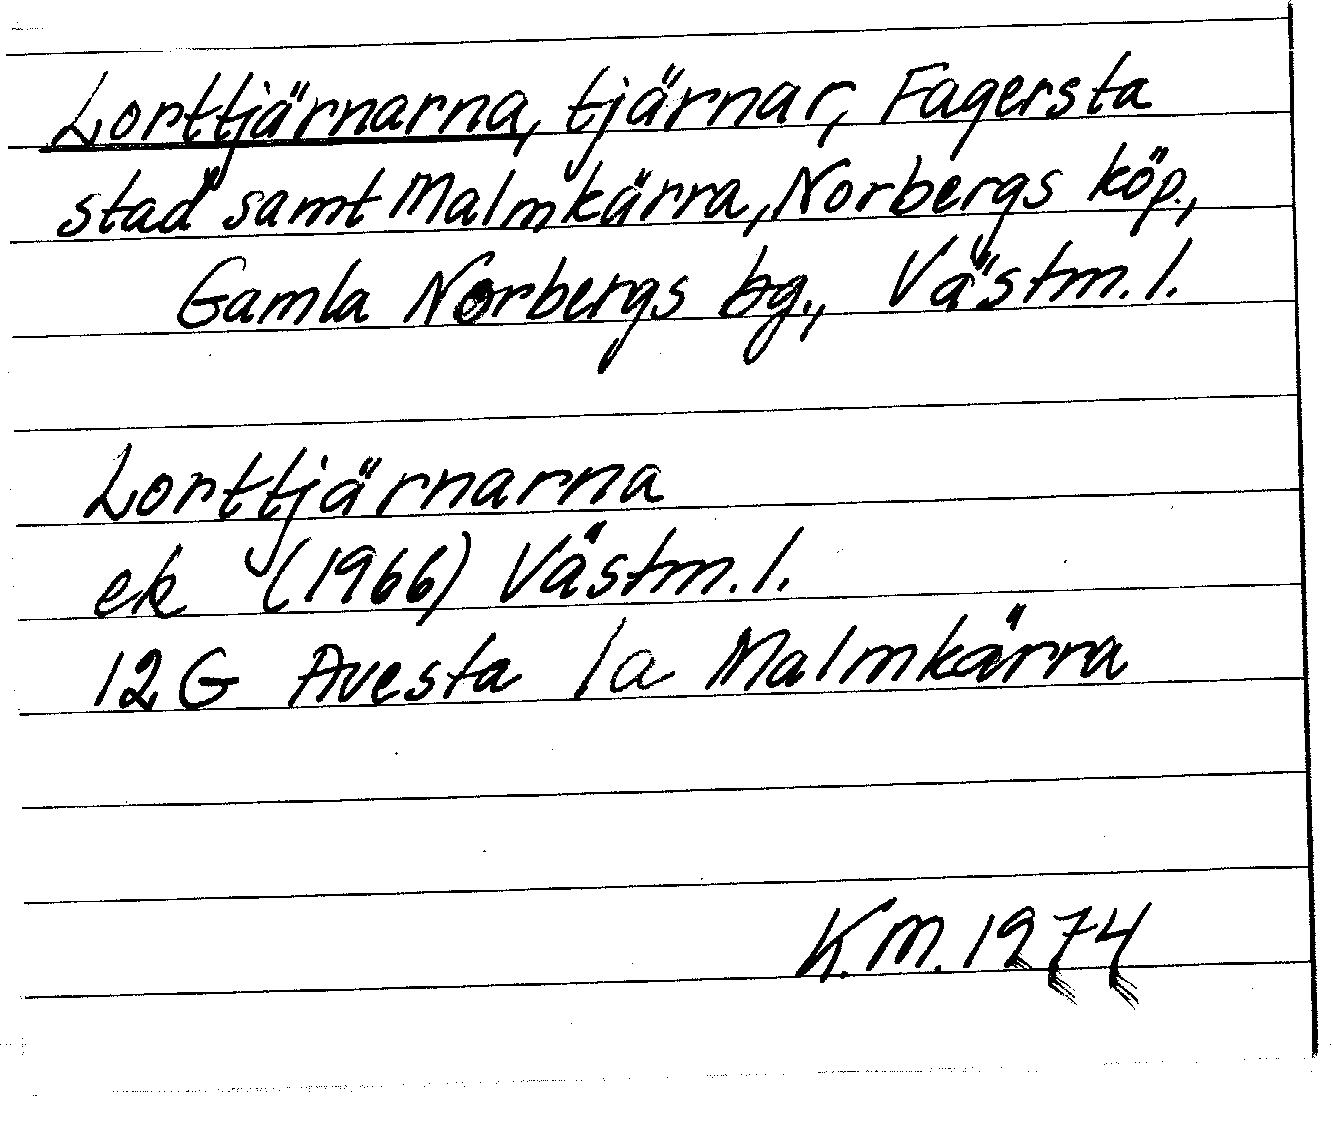 Lorttjärnarna, tjärnar, Fagersta
stad samt Malmkärra, Norbergs köp.,
Gamla Norbergs bg., Västm.l.
Lorttjärnarna
ek (1966) Västm.l.
12G Avesta 1a Malmkärra
K.M. 1974